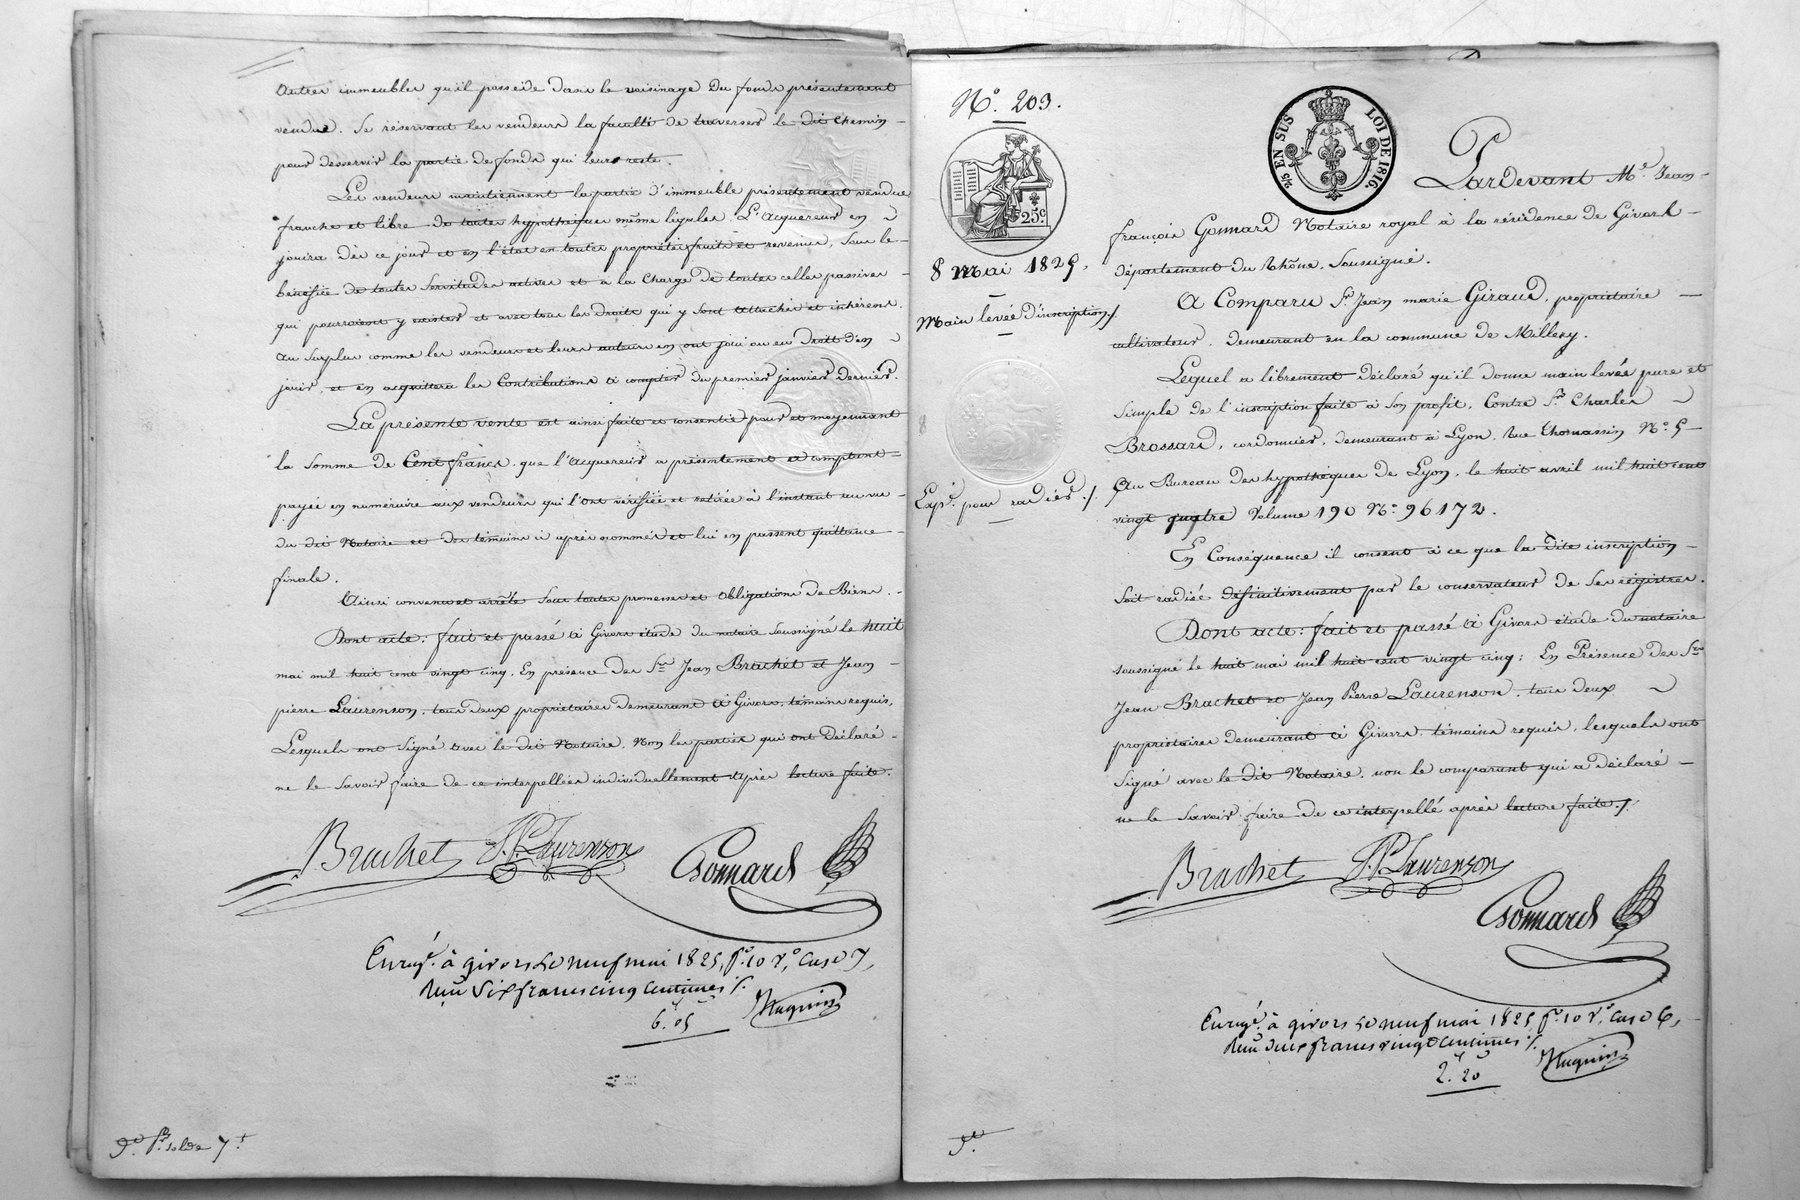 autres immeubles qu'il possede dans le voisinage du fonds présentement
vendu. Se réservant les vendeurs la faculté de traverser le dit chemin
pour desservir la partie de fonds qui leur reste.
Les vendeurs maintiennent la partie d'immeuble présentement vendue
franche et libre de toutes hypothèques même légales. L'acquereur en
jouira dès ce jour et en l'état en toutes propriétés fruits et revenus, sous le
bénéfice de toutes servitudes actives et à la charge de toutes celles passives
qui pourraient y exister et avec tous les droits qui y sont attachés et inhérens.
au surplus comme les vendeurs et leurs auteurs en ont joui ou eu droit d'en
jouir, et en acquittera les contributions à compter du premier janvier dernier.
La présente vente est ainsi faite et consentie pour et moyennant
la somme de Cent francs, que l'acquereur a présentement et comptant
payée en numéraire aux vendeurs qui l'ont vérifiée et retirée à l'instant au vu
du dit Notaire et des témoins ci après nommés et lui en passent quittance
finale.
Ainsi convenu et arrêté sous toutes promesses et obligations de Biens.
Dont acte: fait et passé à Givors étude du notaire soussigné le huit
mai mil huit cent vingt cinq, En présence des Srs Jean Brachet et Jean
pierre Laurenson, tous deux propriétaires demeurant à Givors, témoins requis,
Lesquels ont signé avec le dit Notaire. Non les parties qui ont déclaré
ne le savoir faire de ce interpellées individuellement après lecture faite.
Brachet J. P. Laurenson Gonnard
Enregé. à givors le neuf mai 1825, fo. 10 Ro. Case 7,
Reçu Six francs cinq centimes
6. 05 Huguin
do. solde 7
No. 203.
2/5 EN SUS LOI DE 1816.
25 c.
8 Mai 1825.
Main levée d'inscription
Expon. pour radier
Pardevant Me. Jean
françois Gonnard Notaire royal à la résidence de Givors
département du Rhône, soussigné.
A Comparu Sr. Jean marie Giraud, propriétaire
cultivateur, demeurant en la commune de Millery.
Lequel a librement déclaré qu'il donne main levée pure et
simple de l'inscription faite à son profit, Contre Sr. Charles
Brossard, cordonnier, demeurant à Lyon, rue Thomassin No. 5
Au Bureau des hypothèques de Lyon, le huit avril mil huit cent
vingt quatre Volume 190 No. 96172.
En Conséquence il consent à ce que la dite inscription
soit radiée définitivement par le conservateur de ses registres.
Dont acte: fait et passé à Givors étude du notaire
soussigné le huit mai mil huit cent vingt cinq: En Présence des Srs
Jean Brachet et Jean Pierre Laurenson, tous deux
propriétaires demeurant à Givors, témoins requis, lesquels ont
signé avec le dit Notaire. non le comparant qui a déclaré
ne le savoir faire de ce interpellé après lecture faite.
Brachet J. P. Laurenson
Gonnard
Enregé. à givors le neuf mai 1825, fo. 10 Ro. Case 6,
Reçu deux francs vingt centimes
2. 20 Huguin